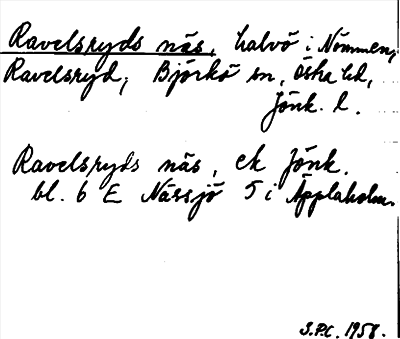 Ravelsryds näs, halvö i Nömmen,
Ravelsryd, Björkö sn, Östra hd,
Jönk. l.
Ravelsryds näs, ek Jönk.
bl. 6 E Nässjö 5 i Äpplaholm.
S.P.C. 1958.